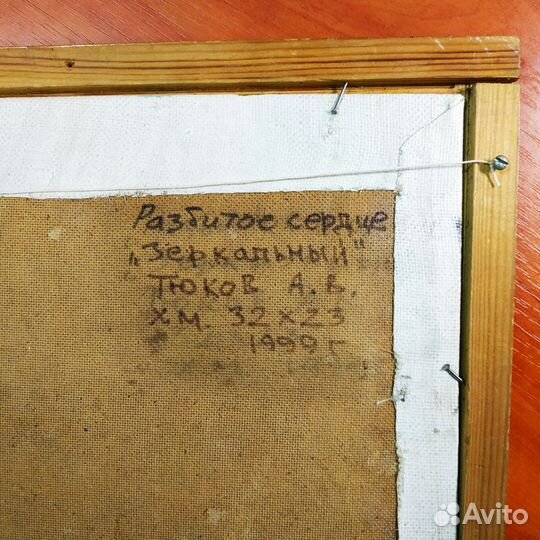 Разбитое сердце
„Зеркальный"
Тюков А.В.
хм. 32х23
1999 г
Avito